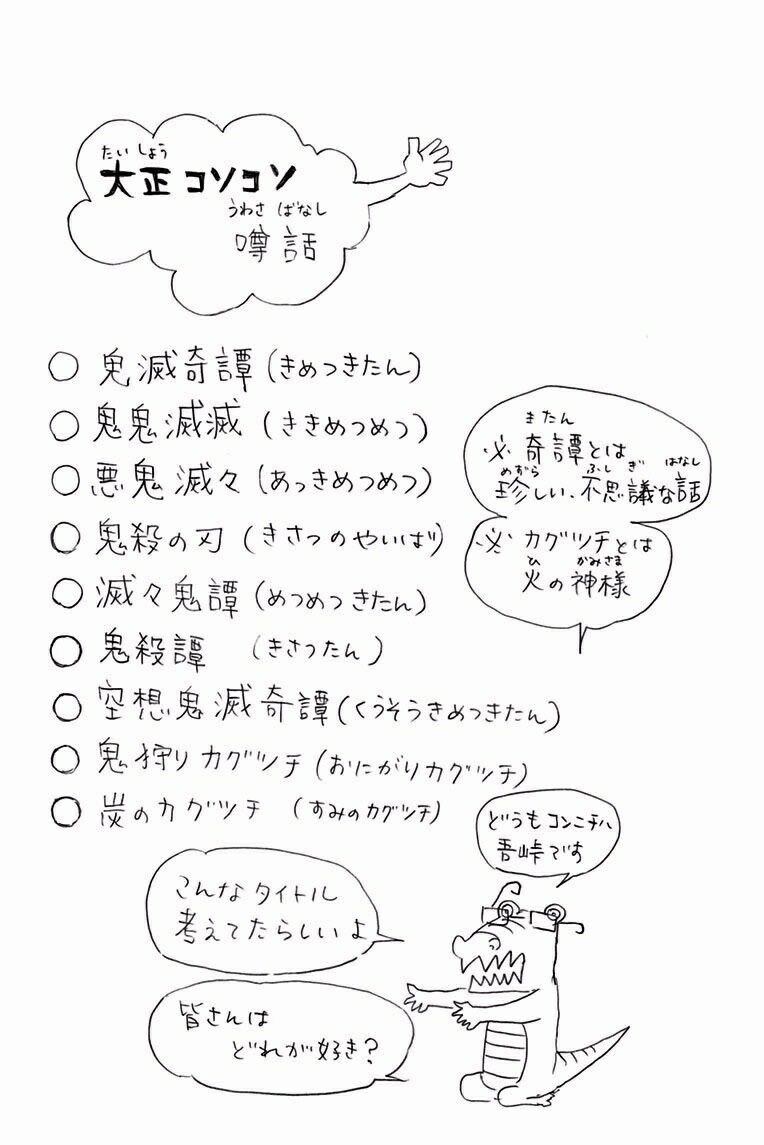 たいしょう
大正コソコソ
うわさばなし
噂話
○ 鬼滅奇譚(きめつきたん)
○ 鬼鬼滅滅(ききめつめつ)
○ 悪鬼滅々(あっきめつめつ)
○ 鬼殺の刃(きさつのやいば)
○ 滅々鬼譚(めつめつきたん)
○ 鬼殺譚(きさつたん)
○ 空想鬼滅奇譚(くうそうきめつきたん)
○ 鬼狩りカグツチ(おにがりカグツチ)
○ 炭のカグツチ(すみのカグツチ)
きたん
※奇譚とは
めずら ふしぎ はなし
珍しい、不思議な話
※カグツチとは
ひ かみさま
火の神様
どうもコンニチハ
吾峠です
こんなタイトル
考えてたらしいよ
皆さんは
どれが好き?